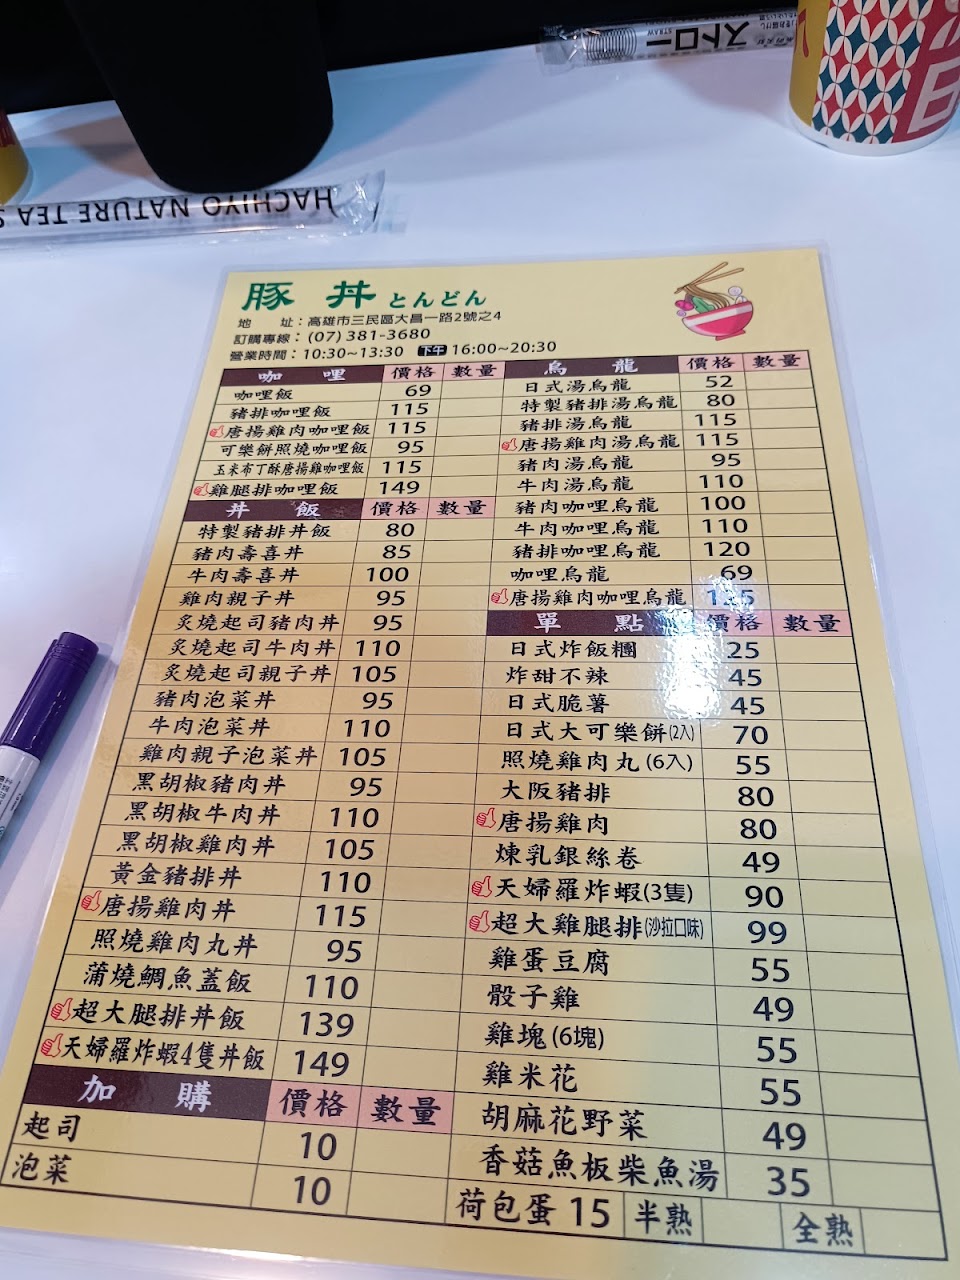 ストロー
STRAW
HACHIYO NATURE TEA
豚丼 とんどん
地 址：高雄市三民區大昌一路2號之4
訂購專線：(07) 381-3680
營業時間：10:30~13:30 下午 16:00~20:30
咖哩 價格 數量
咖哩飯 69
豬排咖哩飯 115
唐揚雞肉咖哩飯 115
可樂餅照燒咖哩飯 95
玉米布丁酥唐揚雞咖哩飯 115
雞腿排咖哩飯 149
丼飯 價格 數量
特製豬排丼飯 80
豬肉壽喜丼 85
牛肉壽喜丼 100
雞肉親子丼 95
炙燒起司豬肉丼 95
炙燒起司牛肉丼 110
炙燒起司親子丼 105
豬肉泡菜丼 95
牛肉泡菜丼 110
雞肉親子泡菜丼 105
黑胡椒豬肉丼 95
黑胡椒牛肉丼 110
黑胡椒雞肉丼 105
黃金豬排丼 110
唐揚雞肉丼 115
照燒雞肉丸丼 95
蒲燒鯛魚蓋飯 110
超大腿排丼飯 139
天婦羅炸蝦4隻丼飯 149
加購 價格 數量
起司 10
泡菜 10
烏龍 價格 數量
日式湯烏龍 52
特製豬排湯烏龍 80
豬排湯烏龍 115
唐揚雞肉湯烏龍 115
豬肉湯烏龍 95
牛肉湯烏龍 110
豬肉咖哩烏龍 100
牛肉咖哩烏龍 110
豬排咖哩烏龍 120
咖哩烏龍 69
唐揚雞肉咖哩烏龍 125
單點 價格 數量
日式炸飯糰 25
炸甜不辣 45
日式脆薯 45
日式大可樂餅(2入) 70
照燒雞肉丸(6入) 55
大阪豬排 80
唐揚雞肉 80
煉乳銀絲卷 49
天婦羅炸蝦(3隻) 90
超大雞腿排(沙拉口味) 99
雞蛋豆腐 55
骰子雞 49
雞塊(6塊) 55
雞米花 55
胡麻花野菜 49
香菇魚板柴魚湯 35
荷包蛋 15 半熟 全熟